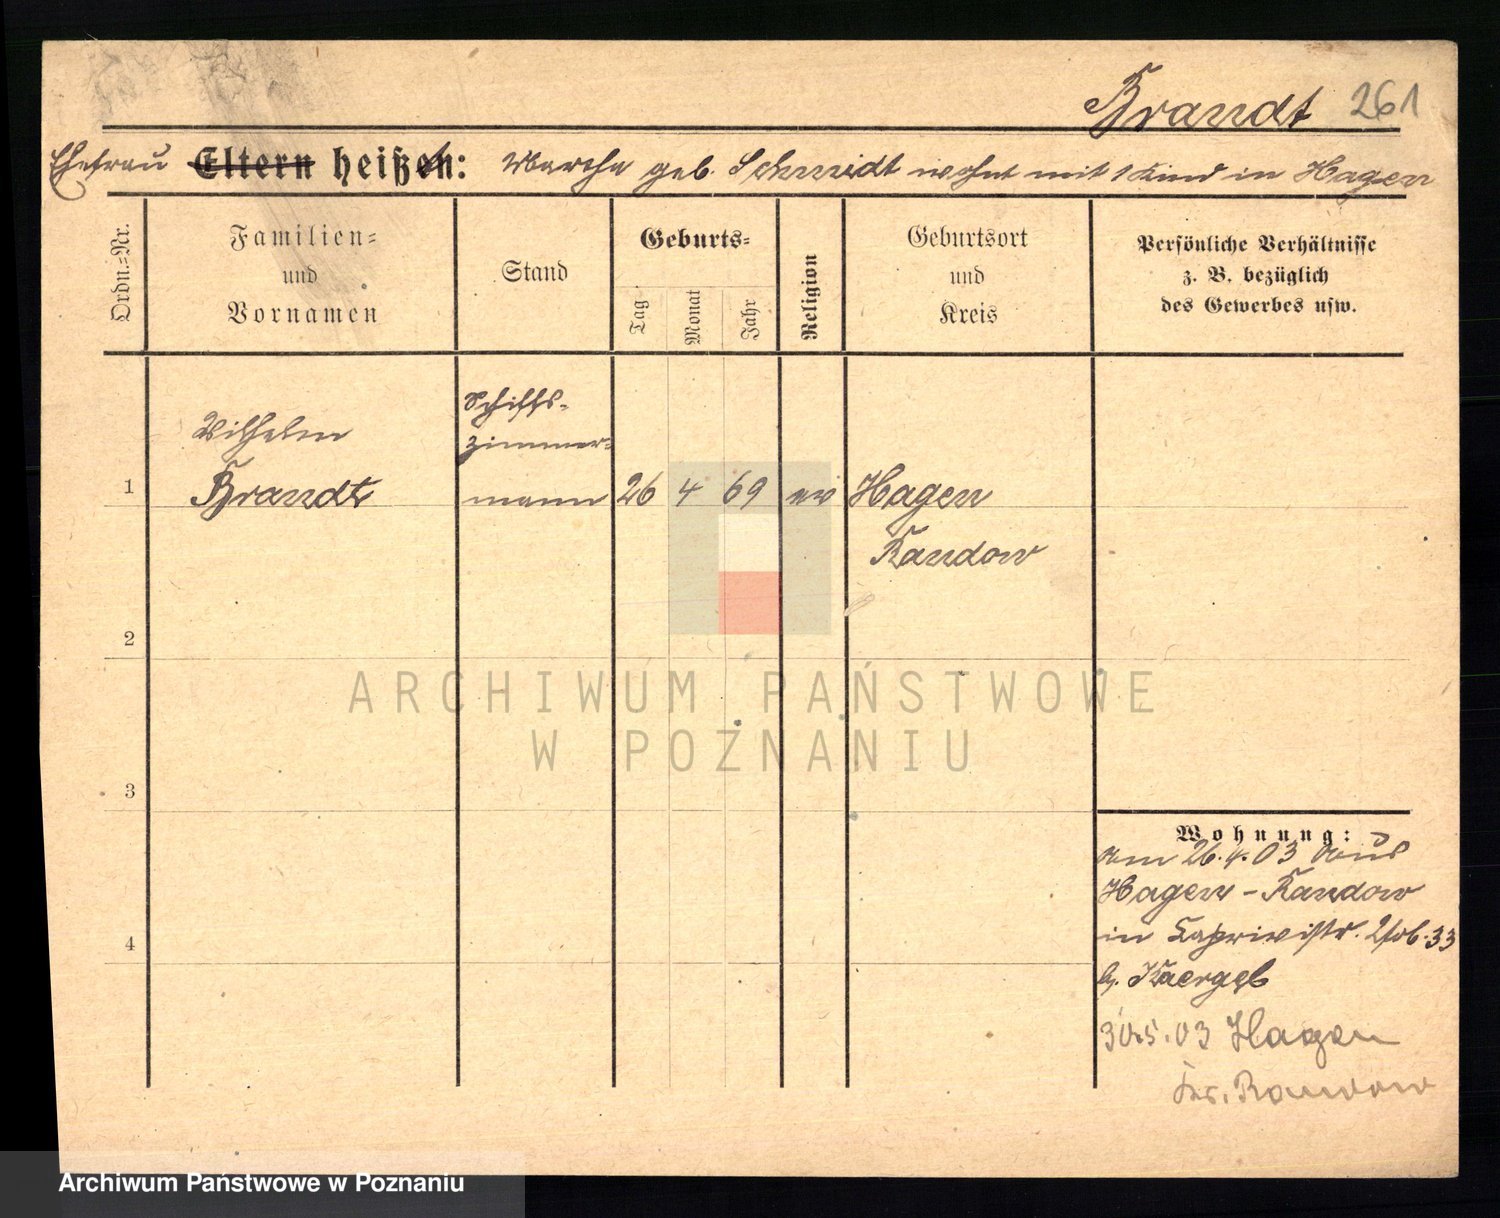 Brandt 261
Ehefrau Eltern heißen: Martha geb. Schmidt wohnt mit 1 Kind in Hagen
Ordn.=Nr.
Familien=
und
Vornamen
Stand
Geburts=
Tag
Monat
Jahr
Religion
Geburtsort
und
Kreis
Persönliche Verhältnisse
z. B. bezüglich
des Gewerbes usw.
Wilhelm
Schiffs-
zimmer-
1 Brandt mann 26 4 69 ev Hagen
Randow
2
ARCHIWUM PAŃSTWOWE
W POZNANIU
3
4
Wohnung:
am 26.4.03 aus
Hagen - Randow
in Kaprivistr. 33
b. Kaergel
30.5.03 Hagen
Kr. Randow
Archiwum Państwowe w Poznaniu